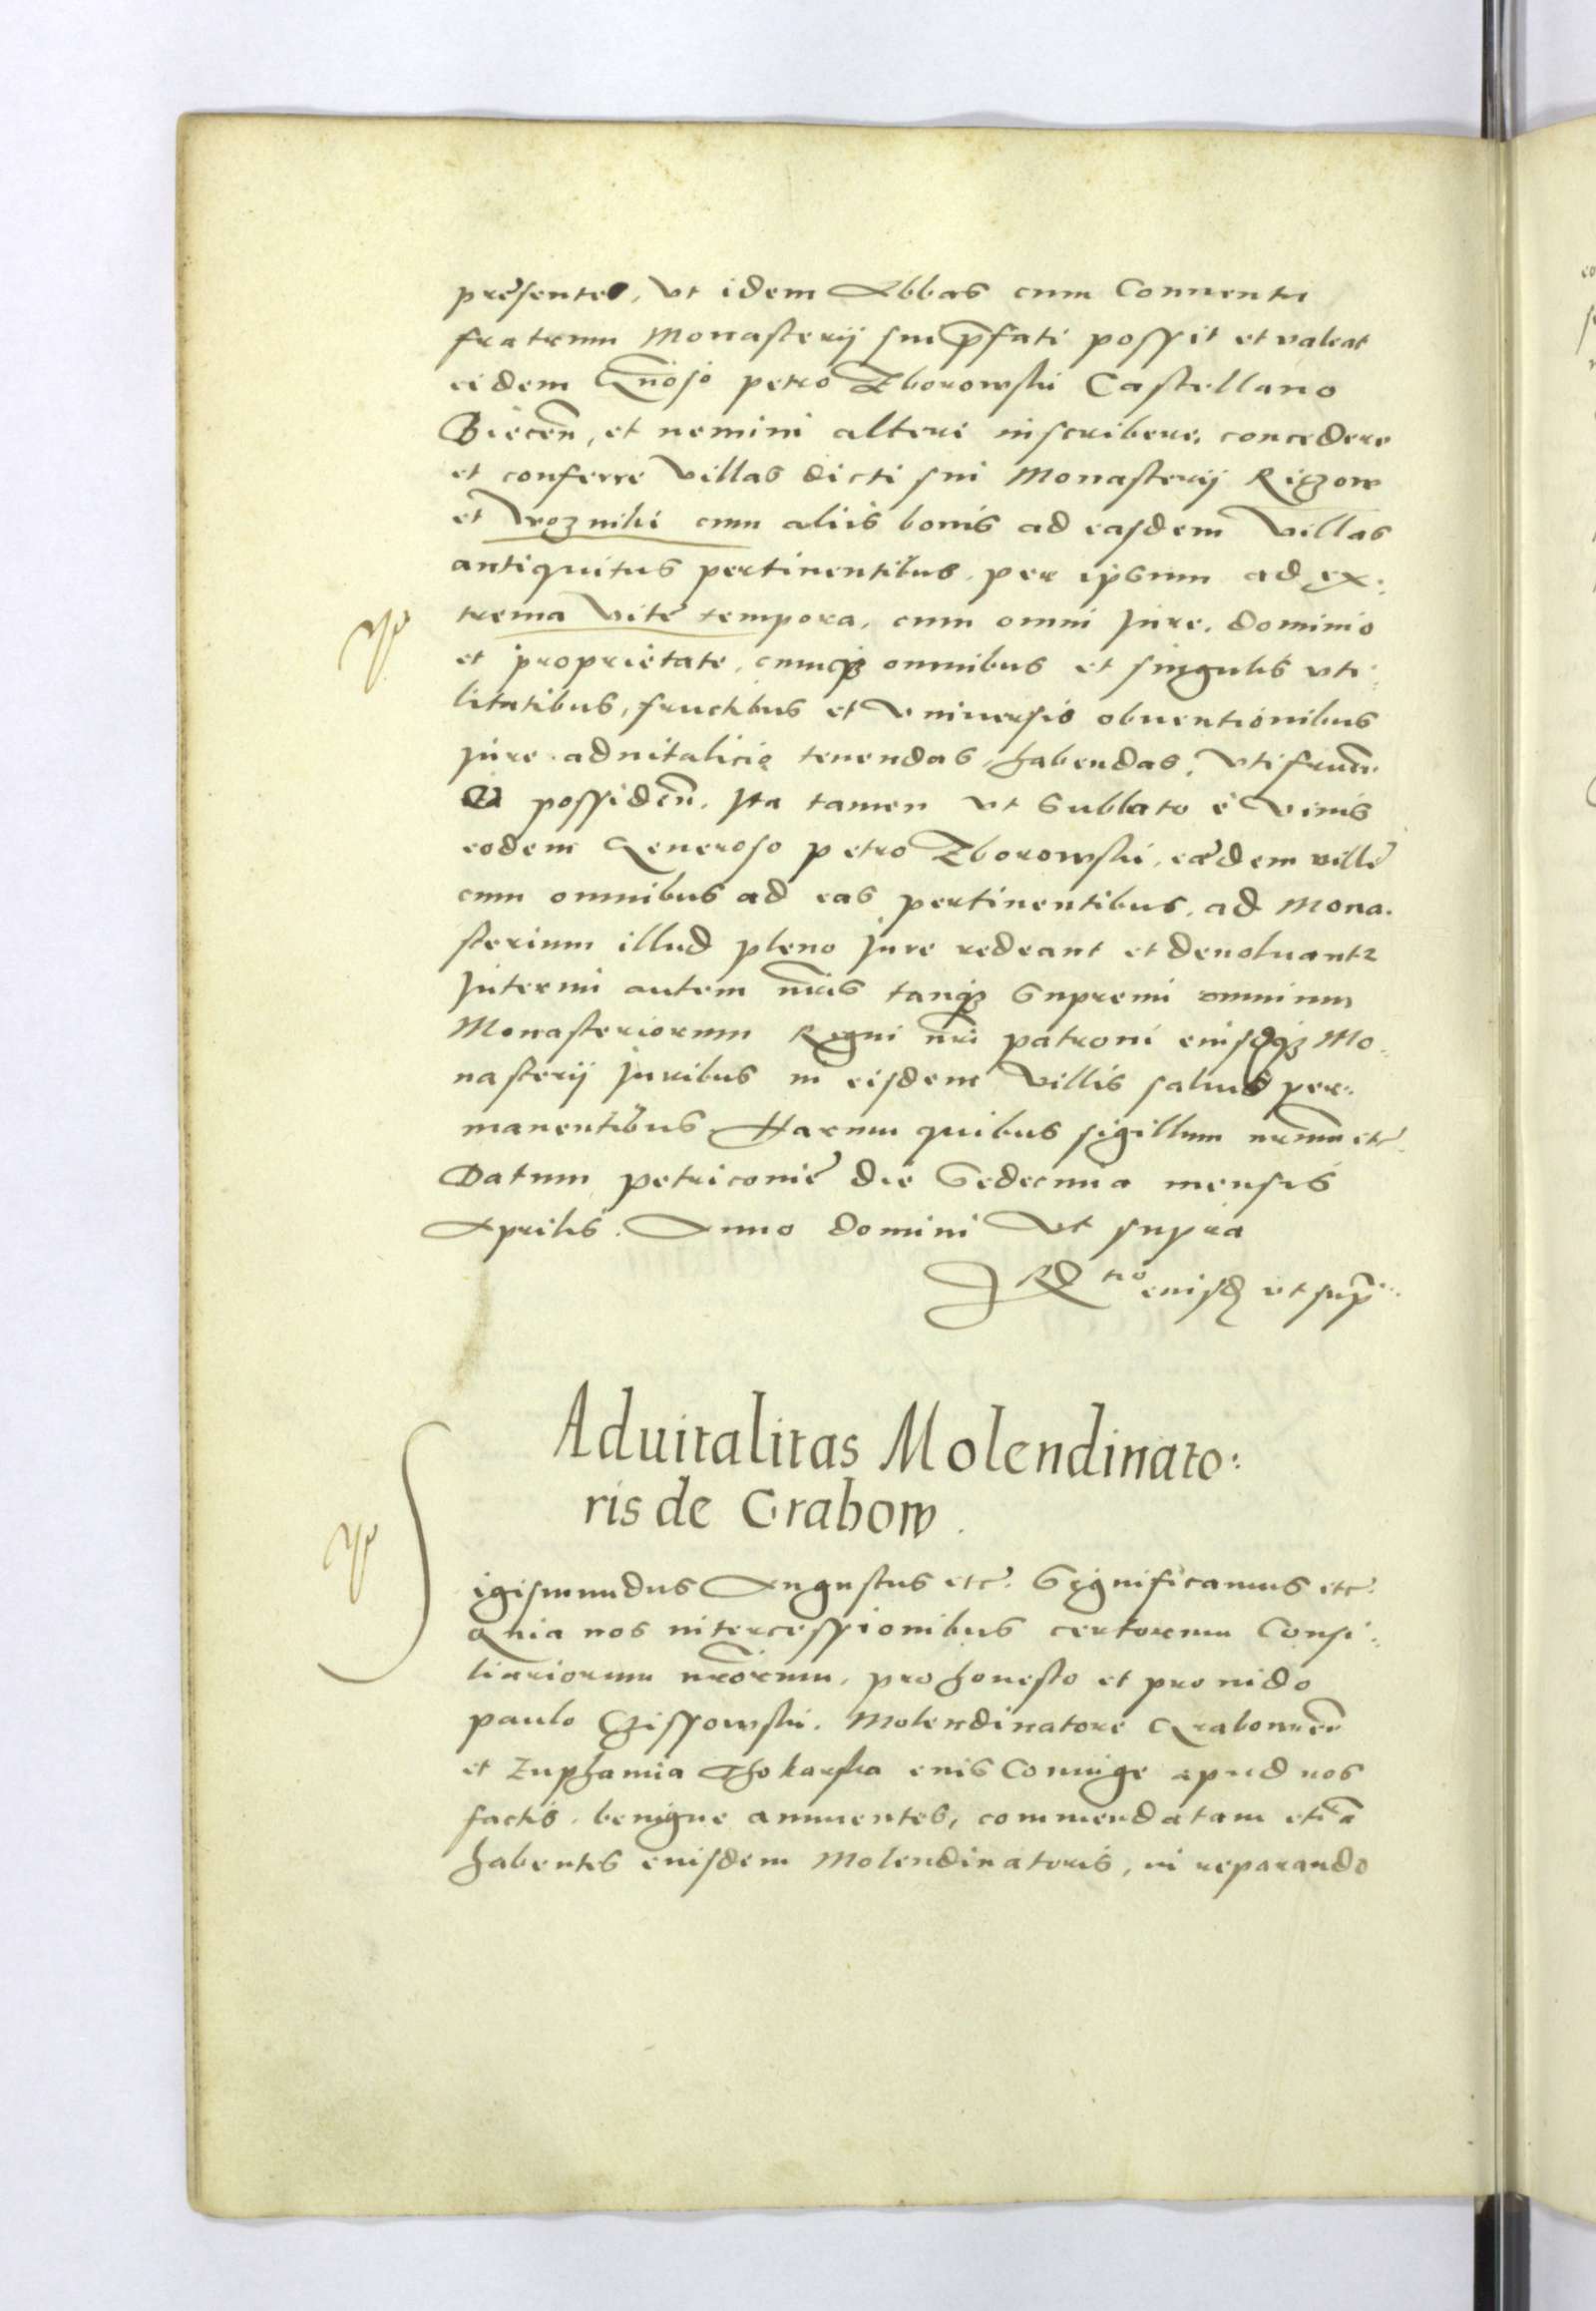 presentes, vt idem Abbas cum Conuentu
fratrum Monasterij sui p̄fati possit et valeat
eidem Gn̄oso petro Zborowski Castellano
Biecen̄, et nemini alteri inscribere, concedere
et conferre villas dicti sui Monasterij Rigzow
et Wozniki cum aliis bonis ad easdem villas
antiquitus pertinentibus, per ipsum ad ex:
trema vite tempora, cum omni Jure, dominio
et proprietate, cumqꝫ omnibus et singulis vti:
litatibus, fructibus et vniuersis obuentionibus
Jure aduitalicio tenendas, habendas, vtifruen̄
et possiden̄. Ita tamen vt sublato è viuis
eodem Generoso petro Zborowski, eædem ville
cum omnibus ad eas pertinentibus, ad Mona:
sterium illud pleno Jure redeant et deuoluantr
Interim autem nr̄is tanqꝫ supremi omnium
Monasteriorum Regni nr̄i patroni eiusdqꝫ Mo:
nasterij Juribus in eisdem villis saluis per:
manentibus. Harum quibus sigillum nr̄um etc.
Datum petricouie die sedecima mensis
Aprilis. Anno domini vt supra
Rᵈ tio eiusd vt sup̄
Aduitalitas Molendinato:
ris de Grabow.
Sigismundus Augustus etc. Significamus etc.
Quia nos intercessionibus certorum Consi:
liariorum nr̄orum, pro honesto et prouido
paulo Czissowski, Molendinatore Grabowien̄
et Euphamia Thokarska eius Coniuge apud nos
factis, benigne annuentes, commendatam etiā
habentes eiusdem Molendinatoris, in reparando